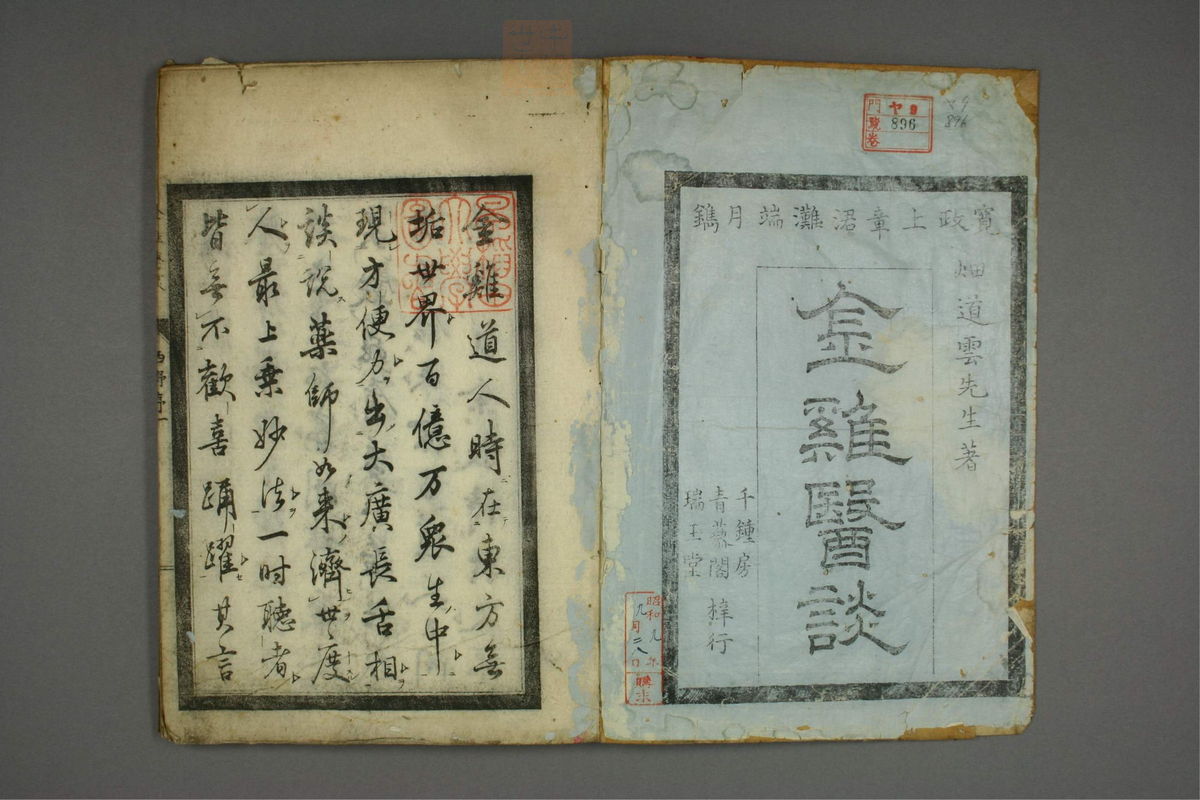 寬政上章涒灘端月鐫
畑道雲先生著
金雞醫談
千鍾房
青藜閣 梓行
瑞玉堂
門 ヤ9
號 896
卷
昭和九年
九月二八日
購求
金雞道人時在東方無
垢世界百億万衆生中
現方便力出大廣長舌相
談說藥師如来濟世度
人最上乘妙法一时聴者
皆無不歡喜踊躍其言